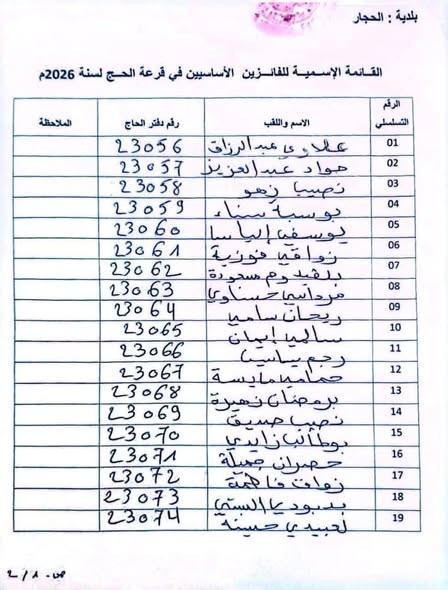 بلدية : الحجار
القــائمة الإســمـيــة للفائــزيــن الأساسيين في قرعة الحــج لسنة 2026م
الرقم التسلسلي الاسم واللقب رقم دفتر الحاج الملاحظة
01 علاوي عبد الرزاق 23056
02 جواد عبد العزيز 23057
03 نصيب زهو 23058
04 بوسبة سناء 23059
05 يوسفي إلياس 23060
06 زواقي فوزية 23061
07 بلقيدوم مسعودة 23062
08 مرداسي حسناوي 23063
09 ريحان سامي 23064
10 سالمي إيمان 23065
11 رجم ياسين 23066
12 حمامي مايسة 23067
13 برمضان زهيرة 23068
14 نصيب صديق 23069
15 بوطالب زايدي 23070
16 حصران جميلة 23071
17 زواق فاطمة 23072
18 23073
19 لعبيدي حسينة 23074